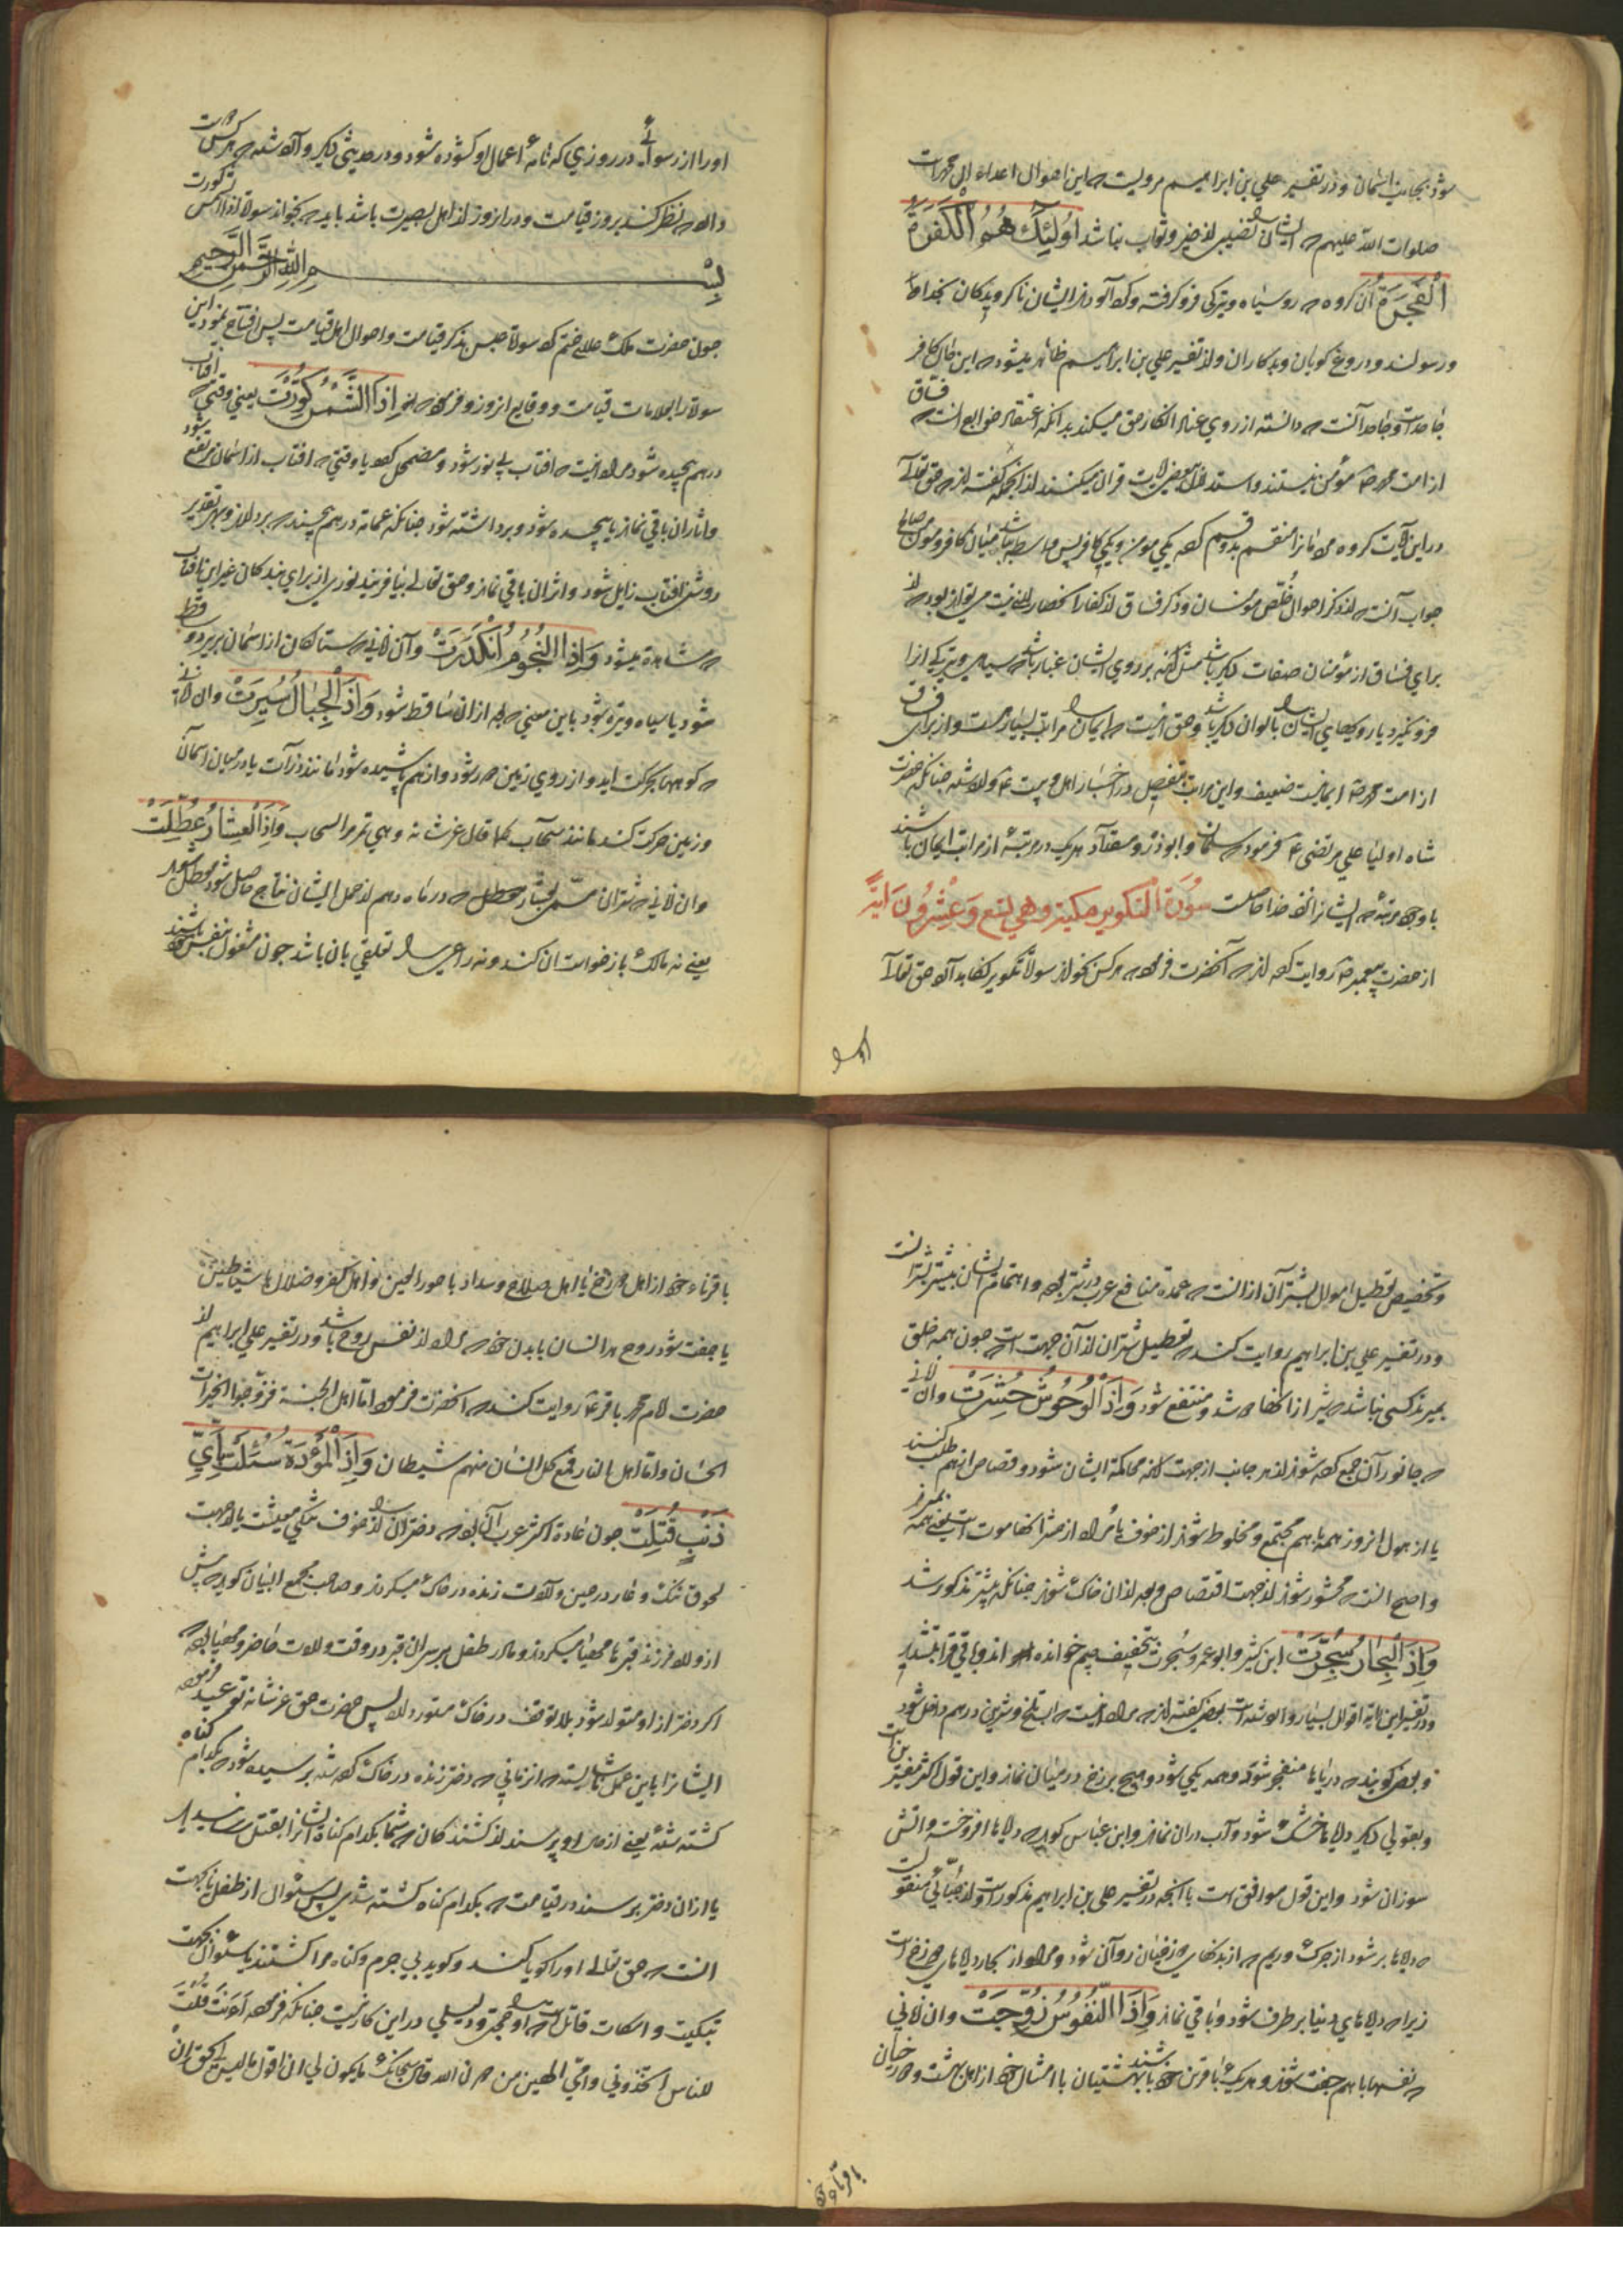 شود بجانب اسمان و در تفسیر علي بن ابراهیم مرویست که این احوال اعداء ال محمد است
صلوات الله علیهم که ایشان را نصیبی از خیر و ثواب نباشد اُولٰئِكَ هُمُ الْكَفَرَةُ
الْفَجَرَةُ آن کروه که روسیاه و تیرکی فرو کرفته و کرد آلوده اند ایشان ناکرویدکان بخدا
و رسولند و دروغ کویان و بدکاران و از تفسیر علي بن ابراهیم ظاهر میشود که این حال کافر
جاحد است و جاحد آنست که دانسته از روي عناد انکار حق میکند بدانکه اعتقاد خوارج انست که فساق
از امت محمد ص مؤمن نیستند و استدلال ببعضی ایات قران میکنند از انجمله کفته اند که حق تعالی
در این آیات کروه مردمانرا منقسم بدو قسم کرده یکي مومن و یکي کافر پس واسطه نباشد میان کافر و مومن صالح
جواب آنست که از ذکر احوال خُلّص مؤمنان و ذکر فساق از کفار انحصار لازم نیست میتواند بود که از
براي فساق از مؤمنان صفات دیکر باشد مثل آنکه بر روي ایشان غبار باشد که سیاهي و تیرکي انرا
فرو نکیرد یا رویهاي ایشان را بالوان دیکر باشد و حق انست که ایمان را مراتب بسیار هست و از براي فساق
از امت محمد ص ایمانیست ضعیف و این مراتب بتفصیل در اخبار اهل بیت ع وارد شده چنانکه حضرت
شاه اولیا علي مرتضی ع فرمود که سلمان و ابوذر و مقداد هر یک در مرتبهٔ از مراتب ایمان باشند
با وجود مرتبهٔ که ایشانرا نزد خدا حاصلست سُورَةُ التکویر مکیة و هي تسع وَعِشْرُونَ اٰيَةً
از حضرت پیغمبر ص روایت کرده اند که آنحضرت فرموده هر کس بخواند سورة تکویر نکاه بدارد حق تعالی
اورا
اورا از رسوائی در روزي که نامهٔ اعمال او کشوده شود و در حدیثی دیکر وارد شده که هر کس دوست
دارد که نظر کند بروز قیامت و در انروز از اهل بصیرت باشد باید که بخواند سورة اذا الشمس کورت
بِسْمِ اللهِ الرَّحْمٰنِ الرَّحِيمِ
چون حضرت ملک علام ختم کرد سورة عبس بذکر قیامت و احوال اهل قیامت پس افتتاح نمود این
سورة را بعلامات قیامت و وقایع انروز و فرموده اِذَا الشَّمْسُ كُوِّرَتْ یعني وقتي که افتاب
در هم پیچیده شود مراد انست که افتاب بي نور شود و مضمحل کردد یا وقتي که افتاب از اسمان مرتفع شود
و اثار ان باقي نماند یا پیچیده شود و برداشته شود چنانکه عمامه در هم پیچند که بردارند و بهر تقدیر
روشنی افتاب زایل شود و اثر ان باقي نماند و حق تعالي بیافریند نوري از براي بندکان غیر این افتاب
که مشاهده میشود وَاِذَا النُّجُومُ انْكَدَرَتْ و آن زماني که ستارکان از اسمان بریزد و ساقط
شود یا سیاه و تیره شود باین معني که بعد از ان ساقط شود وَاِذَا الْجِبَالُ سُيِّرَتْ و ان زماني
که کوهها بحرکت اید و از روي زمین دور شود و از هم پاشیده شود مانند ذرات یا در میان اسمان
و زمین حرکت کند مانند سحاب کما قال عز شانه و هي تمر مر السحاب وَاِذَا الْعِشَارُ عُطِّلَتْ
و ان زماني که شتران مسمّی بعشار معطل که در ماه دهم از حمل ایشان نتایج حاصل شود معطل باشد
یعني نه مالک بازخواست ان کند و نه راعي را تعلقي بان باشد چون مشغول بنفس خود باشند
و تخصیص تعطیل اموال بشتران از انست که عمده منافع عرب در شتر بود و اهتمام ایشان بیشتر بشتر است
و در تفسیر علي بن ابراهیم روایت کند که تعطیل شتران از آن جهت است که چون همه خلق
بمیرند کسي نباشد که شیر از انها دوشد و منتفع شود وَاِذَا الْوُحُوشُ حُشِرَتْ و ان زماني
که جانوران جمع کرده شوند از هر جانب از جهت انکه محاکمهٔ ایشان شود و قصاص از هم طلب کنند
یا از هول انروز همه با هم مجتمع و مخلوط شوند از خوف یا مراد از حشر انها موت است یعني همه بمیرند
و اصح انست که محشور شوند از جهت اقتصاص و بعد از ان خاک شوند چنانکه پیشتر مذکور شد
وَاِذَا الْبِحَارُ سُجِّرَتْ ابن کثیر و ابو عمرو سُجِرَت بتخفیف جیم خوانده اند و باقي قرا بتشدید
و در تفسیر این آیه اقوال بسیار وارد شده است بعضي کفته اند که مراد انست که اب تلخ و شیرین در هم داخل شود
و بعضي کویند که دریاها منفجر شود و همه یکي شود و هیچ برزخ در میان نماند و این قول اکثر مفسرین است
و بقولي دیکر دریاها خشک شود و آب در ان نماند و ابن عباس کوید که دریاها افروخته و اتش
سوزان شود و این قول موافق است با انچه در تفسیر علي بن ابراهیم مذکور است و از جبّائي منقول است
که دریاها پر شود از چرک و ریم که از بدنهاي دوزخیان روان شود و مراد از بحار دریاهاي دوزخ است
زیرا که دریاهاي دنیا برطرف شود و باقي نماند وَاِذَا النُّفُوسُ زُوِّجَتْ و ان زماني
که نفسها با هم جفت شوند و هر یک با قرین خود باشند بهشتیان با امثال خود از اهل بهشت و دوزخیان
با قرناء خود
با قرناء خود از اهل دوزخ یا اهل صلاح و سداد با حور العین و اهل کفر و ضلال با شیاطین
یا جفت شود روح هر انسان با بدن خود که مراد از نفس روح باشد و در تفسیر علي ابراهیم از
حضرت امام محمد باقر ع روایت کند که انحضرت فرموده اما اهل الجنة فزوجوا الخیرات
الحسان و اما اهل النار فمع کل انسان منهم شیطان وَاِذَا الْمَوْؤُدَةُ سُئِلَتْ بِاَيِّ
ذَنْبٍ قُتِلَتْ چون عادة اکثر عرب آن بود که دختران را از خوف تنکي معیشت یا از جهت
لحوق ننک و عار در حین ولادت زنده در خاک میکردند و صاحب مجمع البیان کوید که پیش
از ولاد فرزند قبرها مهیا میکردند و مادر طفل بر سر ان قبر در وقت ولادت حاضر و مهیا بوده که
اکر دختر از او متولد شود بلا توقف در خاک مستور دارد پس حضرت حق عز شانه توعید فرموده
ایشانرا باین عمل ناشایسته که از زماني که دختر زنده در خاک کرده شده پرسیده شود که بکدام کناه
کشته شدهٔ یعني از مادر او پرسند از کشندکان که شما بکدام کناه ایشانرا بقتل رسانیدید
یا از ان دختر پرسند در قیامت که بکدام کناه کشته شدي پس سئوال از طفل نه بجهت
انست که حق تعالي اورا کویا کند و کوید بي جرم و کناه مرا کشتند یا سئوال بجهت
تبکیت و اسکات قاتل است که اورا حجتی و دلیلي در این کار نیست چنانکه فرموده أَءَنْتَ قُلْتَ
للناس اتخذوني و امّي الهین من دون الله قال سبحانک ما یکون لي ان اقول ما لیس لي بحق ان